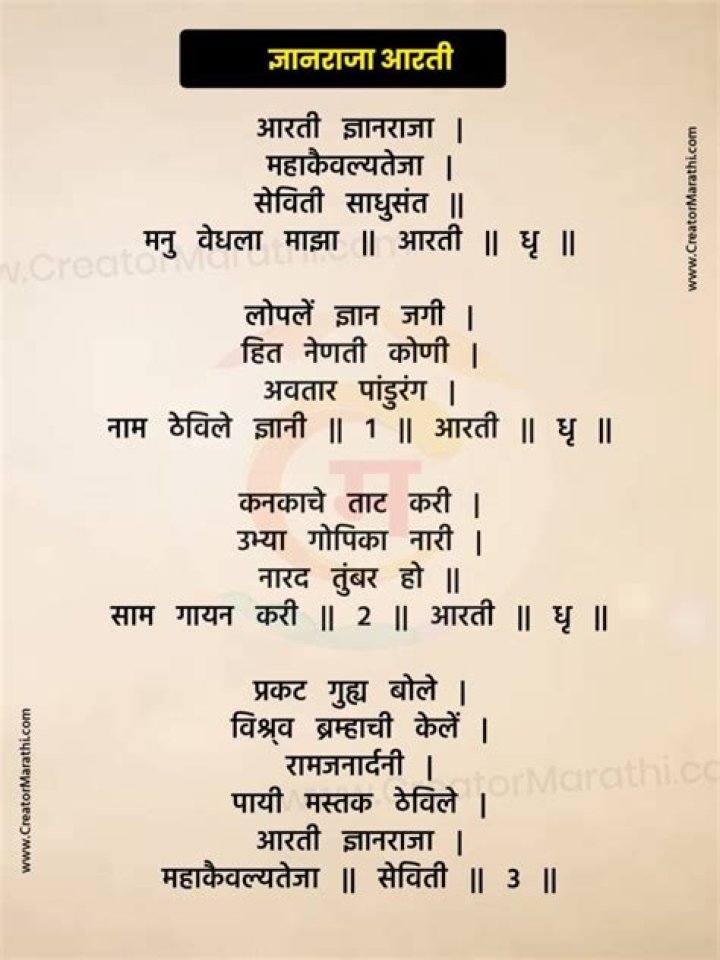 ज्ञानराजा आरती
आरती ज्ञानराजा |
महाकैवल्यतेजा |
सेविती साधुसंत ||
मनु वेधला माझा || आरती || धृ ||
लोपलें ज्ञान जगी |
हित नेणती कोणी |
अवतार पांडुरंग |
नाम ठेविले ज्ञानी || 1 || आरती || धृ ||
कनकाचे ताट करी |
उभ्या गोपिका नारी |
नारद तुंबर हो ||
साम गायन करी || 2 || आरती || धृ ||
प्रकट गुह्य बोले |
विश्र्व ब्रम्हाची केलें |
रामजनार्दनी |
पायी मस्तक ठेविले |
आरती ज्ञानराजा |
महाकैवल्यतेजा || सेविती || 3 ||
www.CreatorMarathi.com
www.CreatorMarathi.com
w.CreatorMarathi.com
www.CreatorMarathi.cc
म